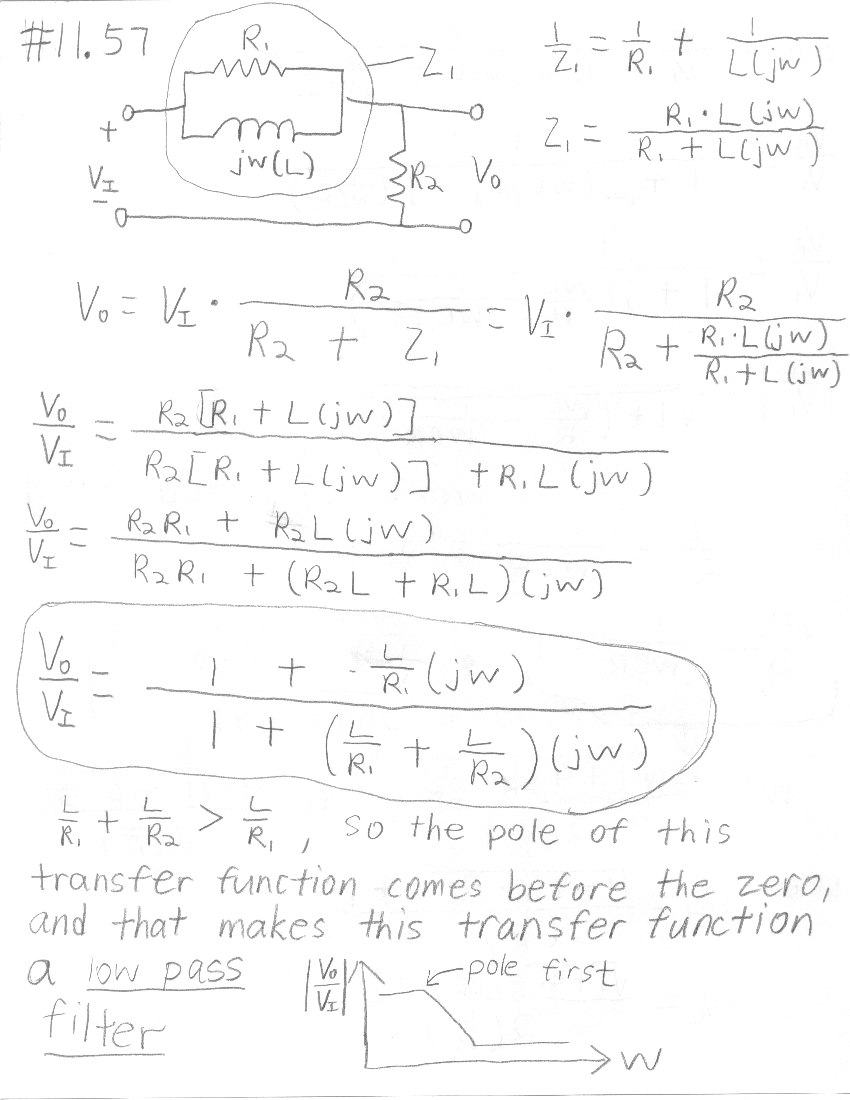 #11.57
R₁
Z₁
jw(L)
+
V_I
-
R₂
V₀
1/Z₁ = 1/R₁ + 1/L(jw)
Z₁ = R₁·L(jw) / R₁ + L(jw)
V₀ = V_I · R₂ / R₂ + Z₁ = V_I · R₂ / R₂ + R₁·L(jw) / R₁ + L(jw)
V₀/V_I = R₂[R₁ + L(jw)] / R₂[R₁ + L(jw)] + R₁L(jw)
V₀/V_I = R₂R₁ + R₂L(jw) / R₂R₁ + (R₂L + R₁L)(jw)
V₀/V_I = 1 + L/R₁(jw) / 1 + (L/R₁ + L/R₂)(jw)
L/R₁ + L/R₂ > L/R₁, so the pole of this
transfer function comes before the zero,
and that makes this transfer function
a low pass
filter
|V₀/V_I|
pole first
w